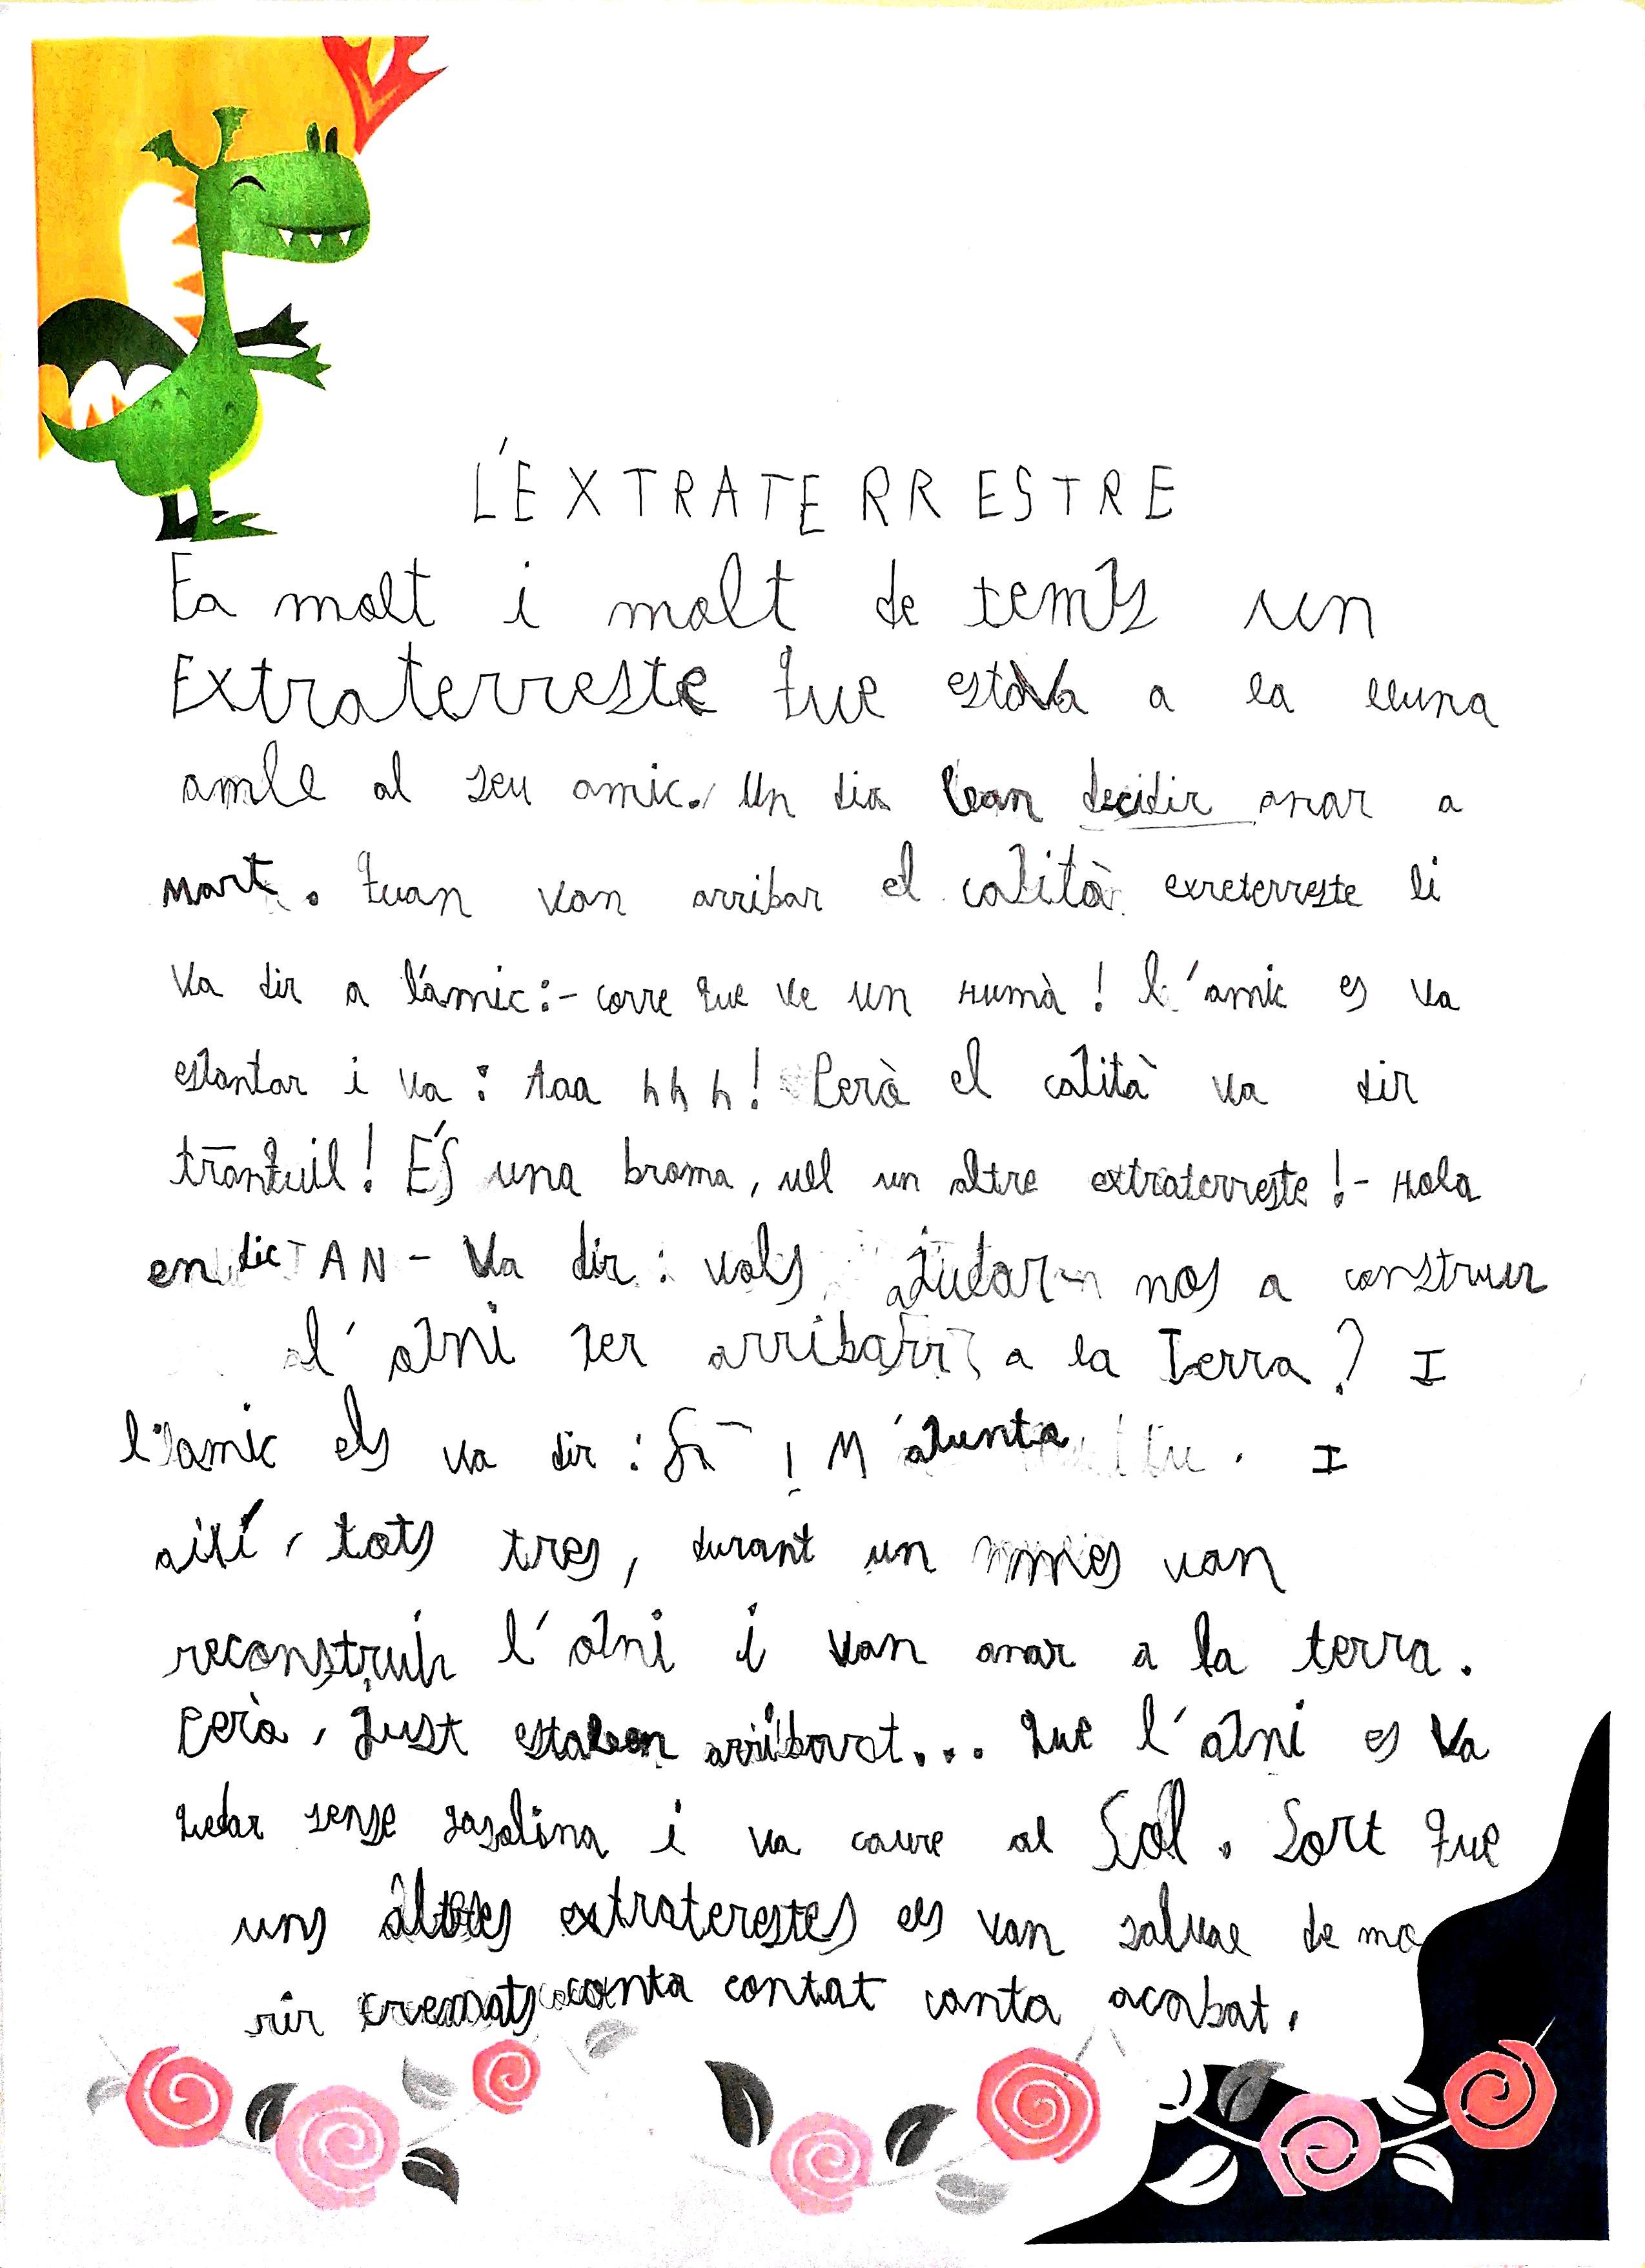 L'EXTRATERRESTRE
Fa molt i molt de temps un
Extraterreste que estava a la lluna
amb al seu amic. Un dia van decidir anar a
Mart. Quan van arribar el capità exreterreste li
va dir a l'amic:- corre que ve un Humà! l'amic es va
espantar i va: Aaa hhh! Però el capità va dir
tranquil! És una broma, es un altre extraterreste!- Hola
en dic IAN - Va dir: vols ajudar nos a construir
l'obni per arribar a la Terra? I
l'amic els va dir: Sí! M'apunta. I
així, tots tres, durant un mes van
reconstruir l'obni i van anar a la terra.
Però, just estaven arribant... que l'obni es va
quedar sense gasolina i va caure al Sol. Sort que
uns altres extraterestes els van salvar de mo
rir cremats conta contat conta acabat.